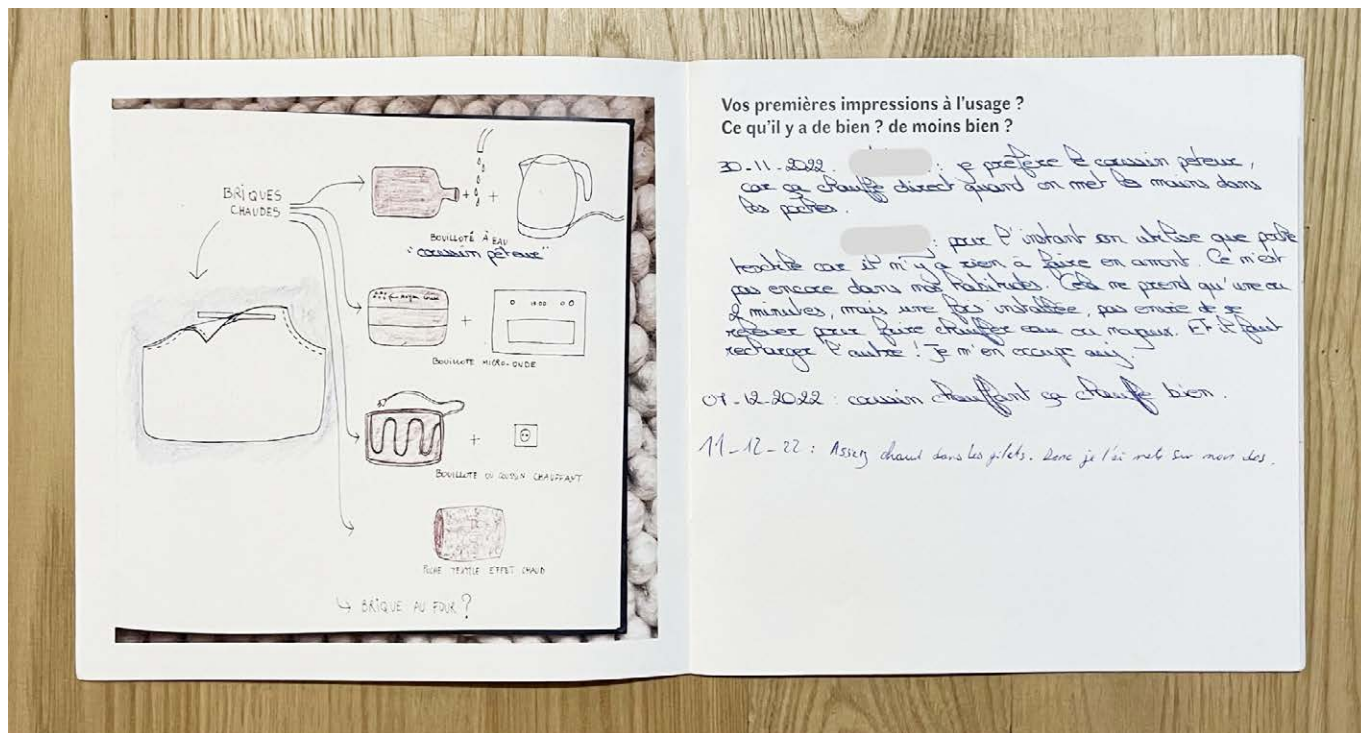 BRIQUES
CHAUDES
BOUILLOTE À EAU
"coussin péteur"
BOUILLOTE MICRO-ONDE
BOUILLOTE OU COUSSIN CHAUFFANT
POCHE TEXTILE EFFET CHAUD
↳ BRIQUE AU FOUR ?
Vos premières impressions à l'usage ?
Ce qu'il y a de bien ? de moins bien ?
30-11-2022 : je préfère le coussin péteur,
car ça chauffe direct quand on met les mains dans
les poches.
: pour l'instant on utilise que poche
textile car il n'y a rien à faire en amont. Ce n'est
pas encore dans nos habitudes. Cela ne prend qu'une ou
2 minutes, mais une fois installée, pas envie de se
relever pour faire chauffer eau ou noyaux. Et il faut
recharger l'autre ! Je m'en occupe
07-12-2022 : coussin chauffant ça chauffe bien.
11-12-22 : Assez chaud dans les gilets. Donc je l'ai mets sur mon dos.